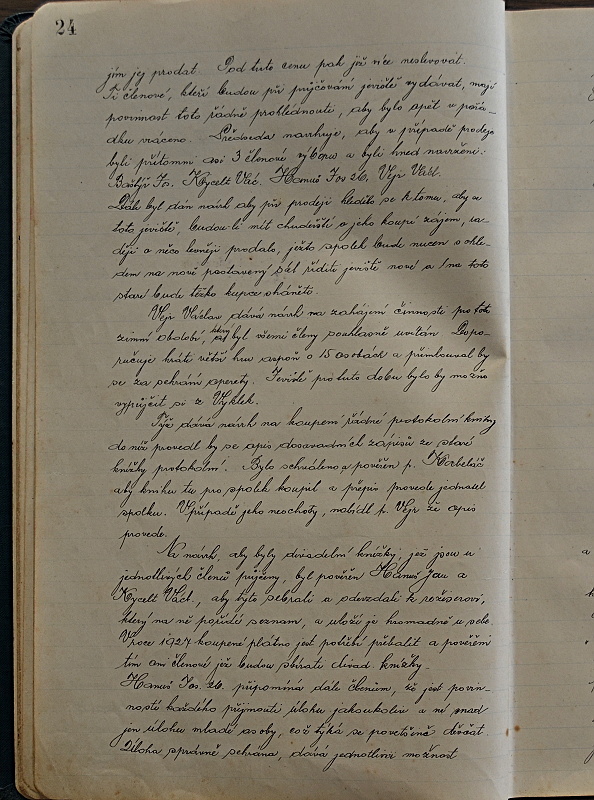 24
jím jej prodat. Pod tuto cenu pak již více neslevovát.
Ti členové, kteří budou při půjčování jeviště vydávat, mají
povinnost toto řádně prohlédnouti, aby bylo zpět v pořá-
dku vráceno. Předseda navrhuje, aby v případě prodeje
byli přítomni asi 3 členové výboru a byli hned navrženi:
Baštýř Jo. Kycelt Vác. Hanuš Jos 26. Vejr Václ.
Dále byl dán návrh aby při prodeji hledělo se k tomu, aby a
toto jeviště, budou-li mít chudeřští o jeho koupi zájem, ra-
ději o něco levněji prodalo, ježto spolek bude nucen s ohle-
dem na nově postavený sál říditi jeviště nové a na toto
staré bude těžko kupce sháněti.
Vejr Václav dává návrh na zahájení činnosti pro toto
zimní období, který byl všemi členy souhlasně uvítán. Dopo-
ručuje hráti větší hru aspoň o 15 osobách a přimlouval by
se za sehrání operety. Jeviště pro tuto dobu bylo by možno
vypůjčit si z Vyklek.
Týž dává návrh na koupení řádné protokolní knihy
do níž provedl by se opis dosavadních zápisů ze staré
knížky protokolní. Bylo schváleno a pověřen p. Korbelář
aby knihu tu pro spolek koupil a přepis provede jednatel
spolku. V případě jeho neochoty, nabídl p. Vejr že opis
provede.
Na návrh, aby byly divadelní knížky, jež jsou u
jednotlivých členů půjčeny, byl pověřen Hanuš Jan a
Kycelt Václ., aby byto sebrali a odevzdali k režiserovi,
který na ně pořídí seznam, a uloží je hromadně u sebe.
V roce 1927 koupené plátno jest potřebí přibalit a pověřeni
tím oni členové již budou sbírati divad. knížky.
Hanuš Jos. 26. připomíná dále členům, že jest povin-
ností každého přijmouti úlohu jakoukoliv a ne snad
jen úlohu mladé osoby, což týká se povětšině děvčat.
Úloha správně sehrána, dává jednotlivci možnost